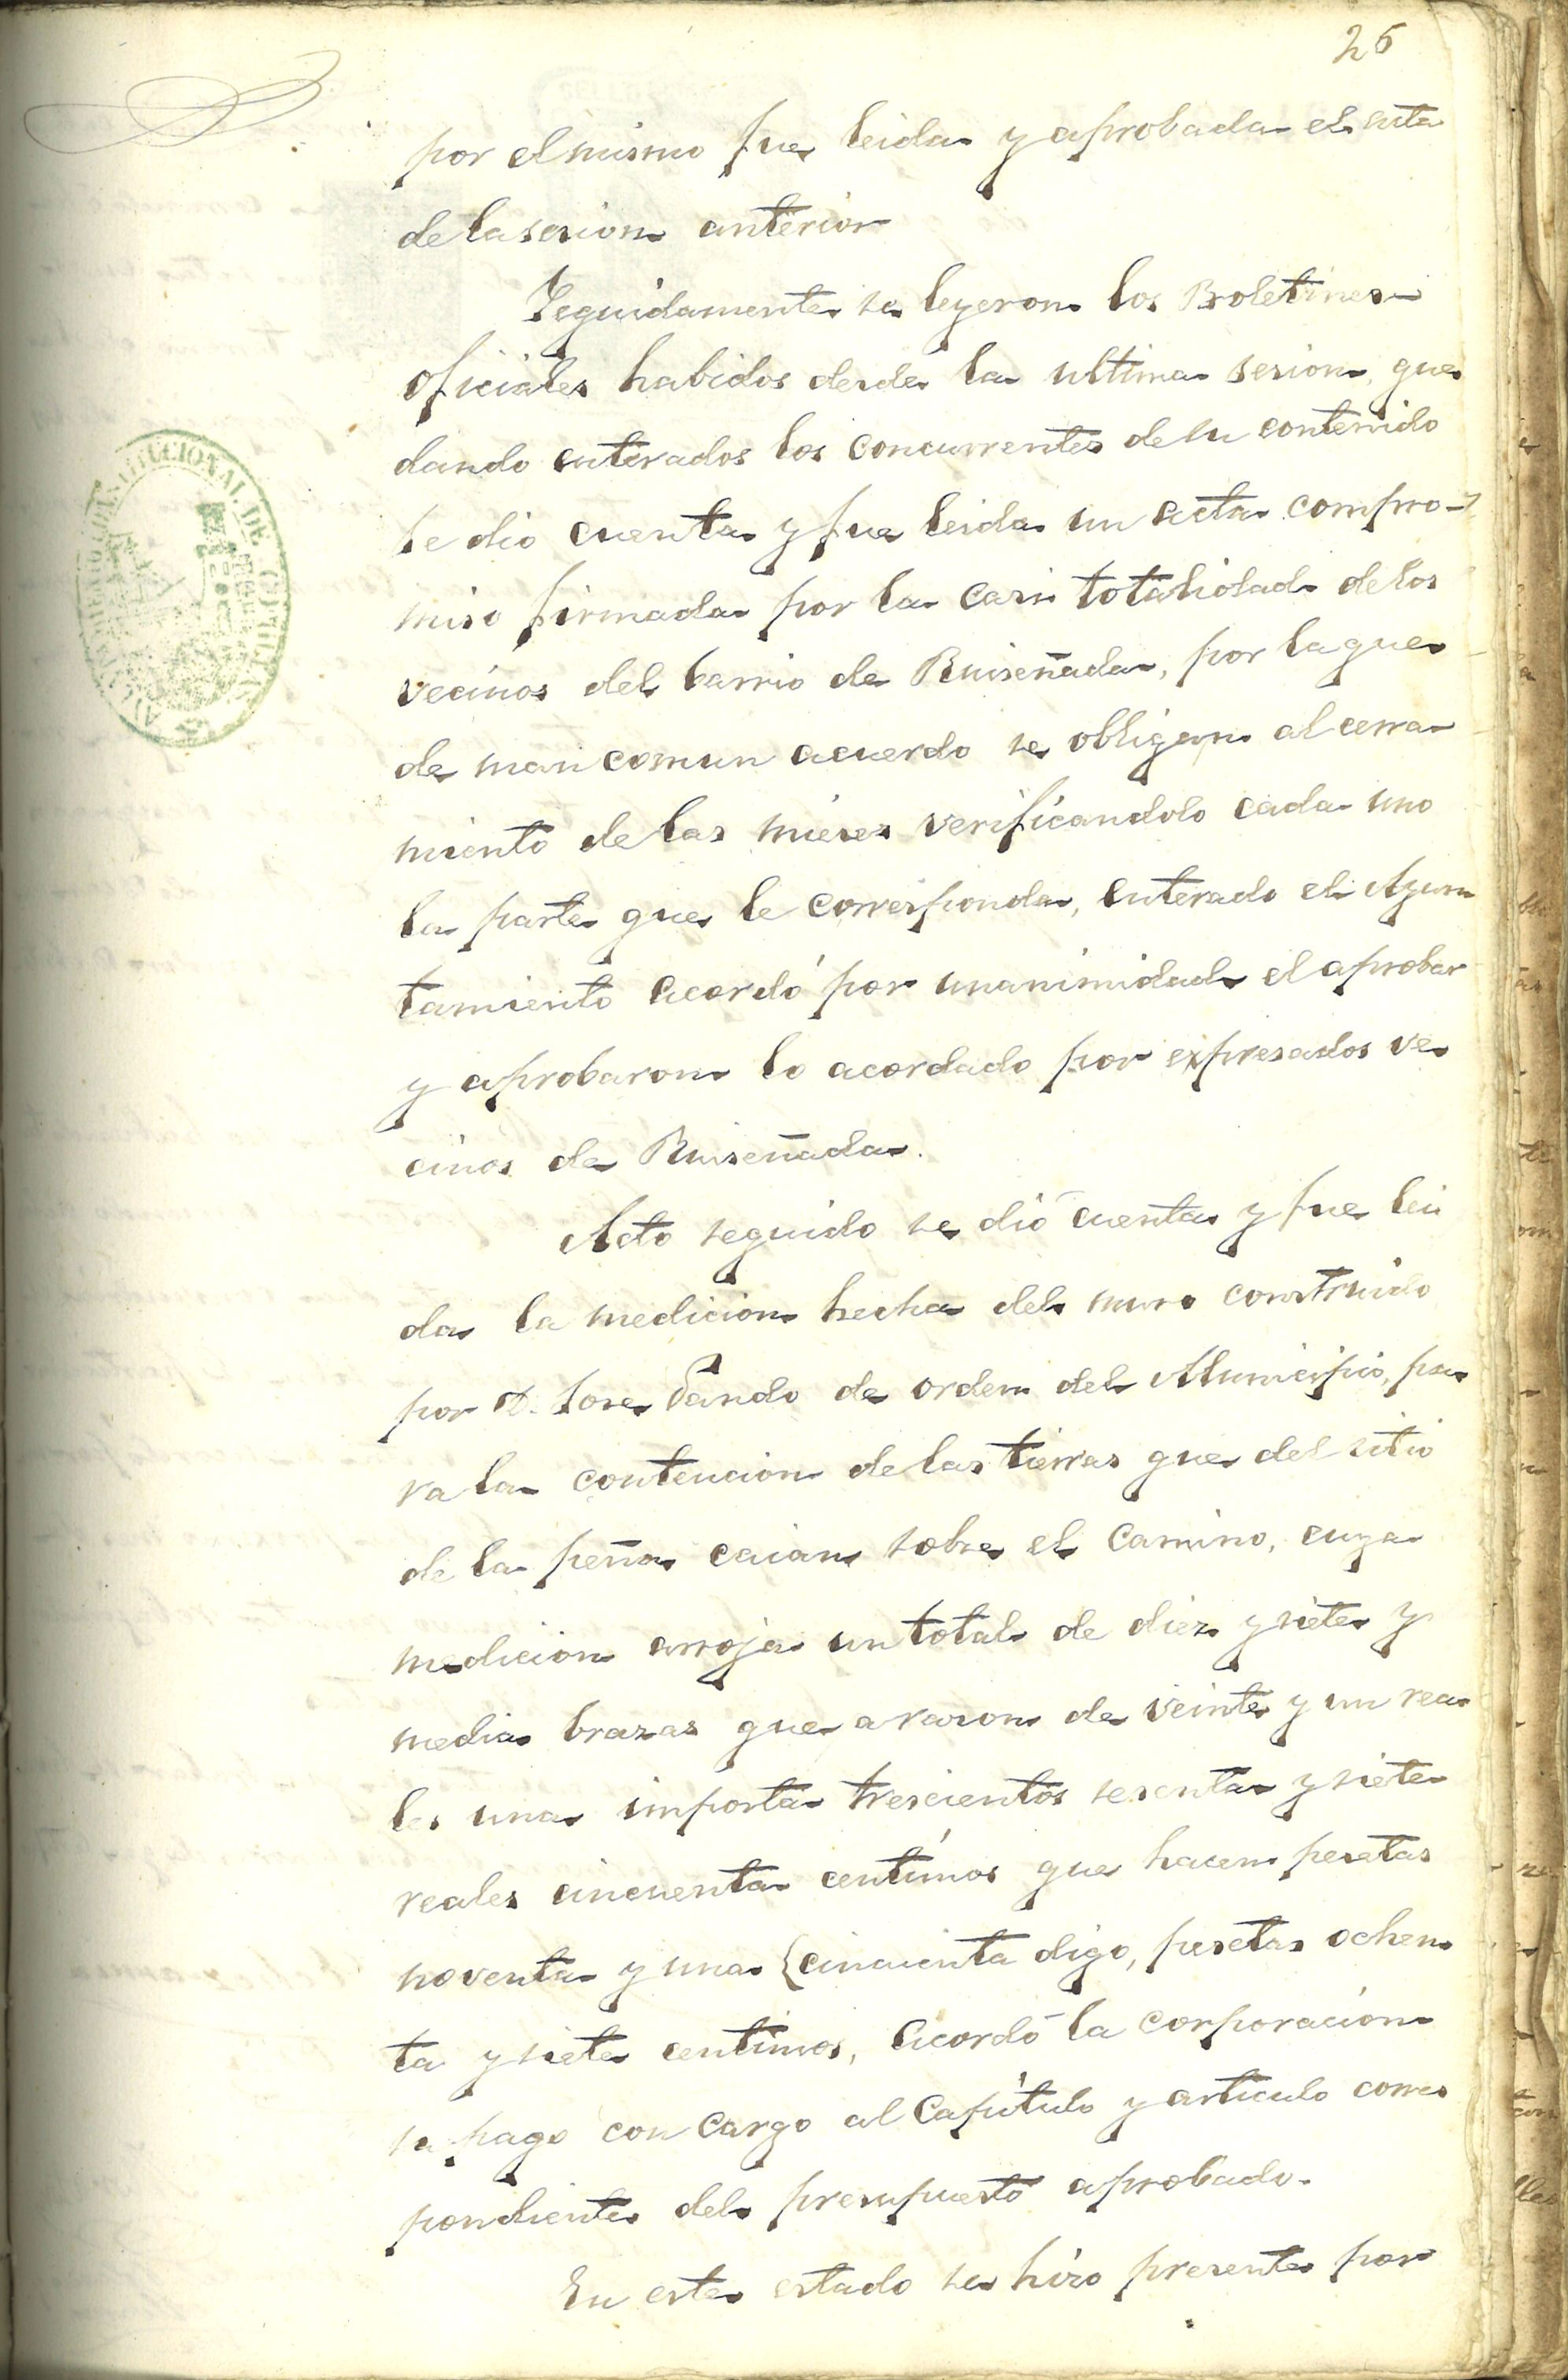 26
por el mismo fue leida y aprobada el acta
de la sesion anterior
Seguidamente se leyeron los Boletines
oficiales habidos desde la ultima sesion, que
dando enterados los concurrentes de su contenido
se dio cuenta y fue leida un acta compro-
miso firmada por la casi totalidad de los
vecinos del barrio de Ruiseñada, por la que
de man comun acuerdo se obligan al cerra
miento de las mieses verificandolo cada uno
la parte que le corresponda, enterado el Ayun
tamiento acordó por unanimidad el aprobar
y aprobaron lo acordado por expresados ve
cinos de Ruiseñada.
Acto seguido se dió cuenta y fue lei
da la medicion hecha del muro construido
por D. Jose Pando de orden del Municipio, pa
ra la contencion de las tierras que del sitio
de la peña caian sobre el camino, cuya
medicion arroja un total de diez y siete y
media brazas que a razon de veinte y un rea
les una importa trescientos sesenta y siete
reales cincuenta centimos que hacen pesetas
noventa y una (cincuenta digo, pesetas ochen
ta y siete centimos, acordó la corporacion
su pago con cargo al Capítulo y articulo corres
pondiente del presupuesto aprobado.
En este estado se hizo presente por
AYUNTAMIENTO CONSTITUCIONAL DE COMILLAS